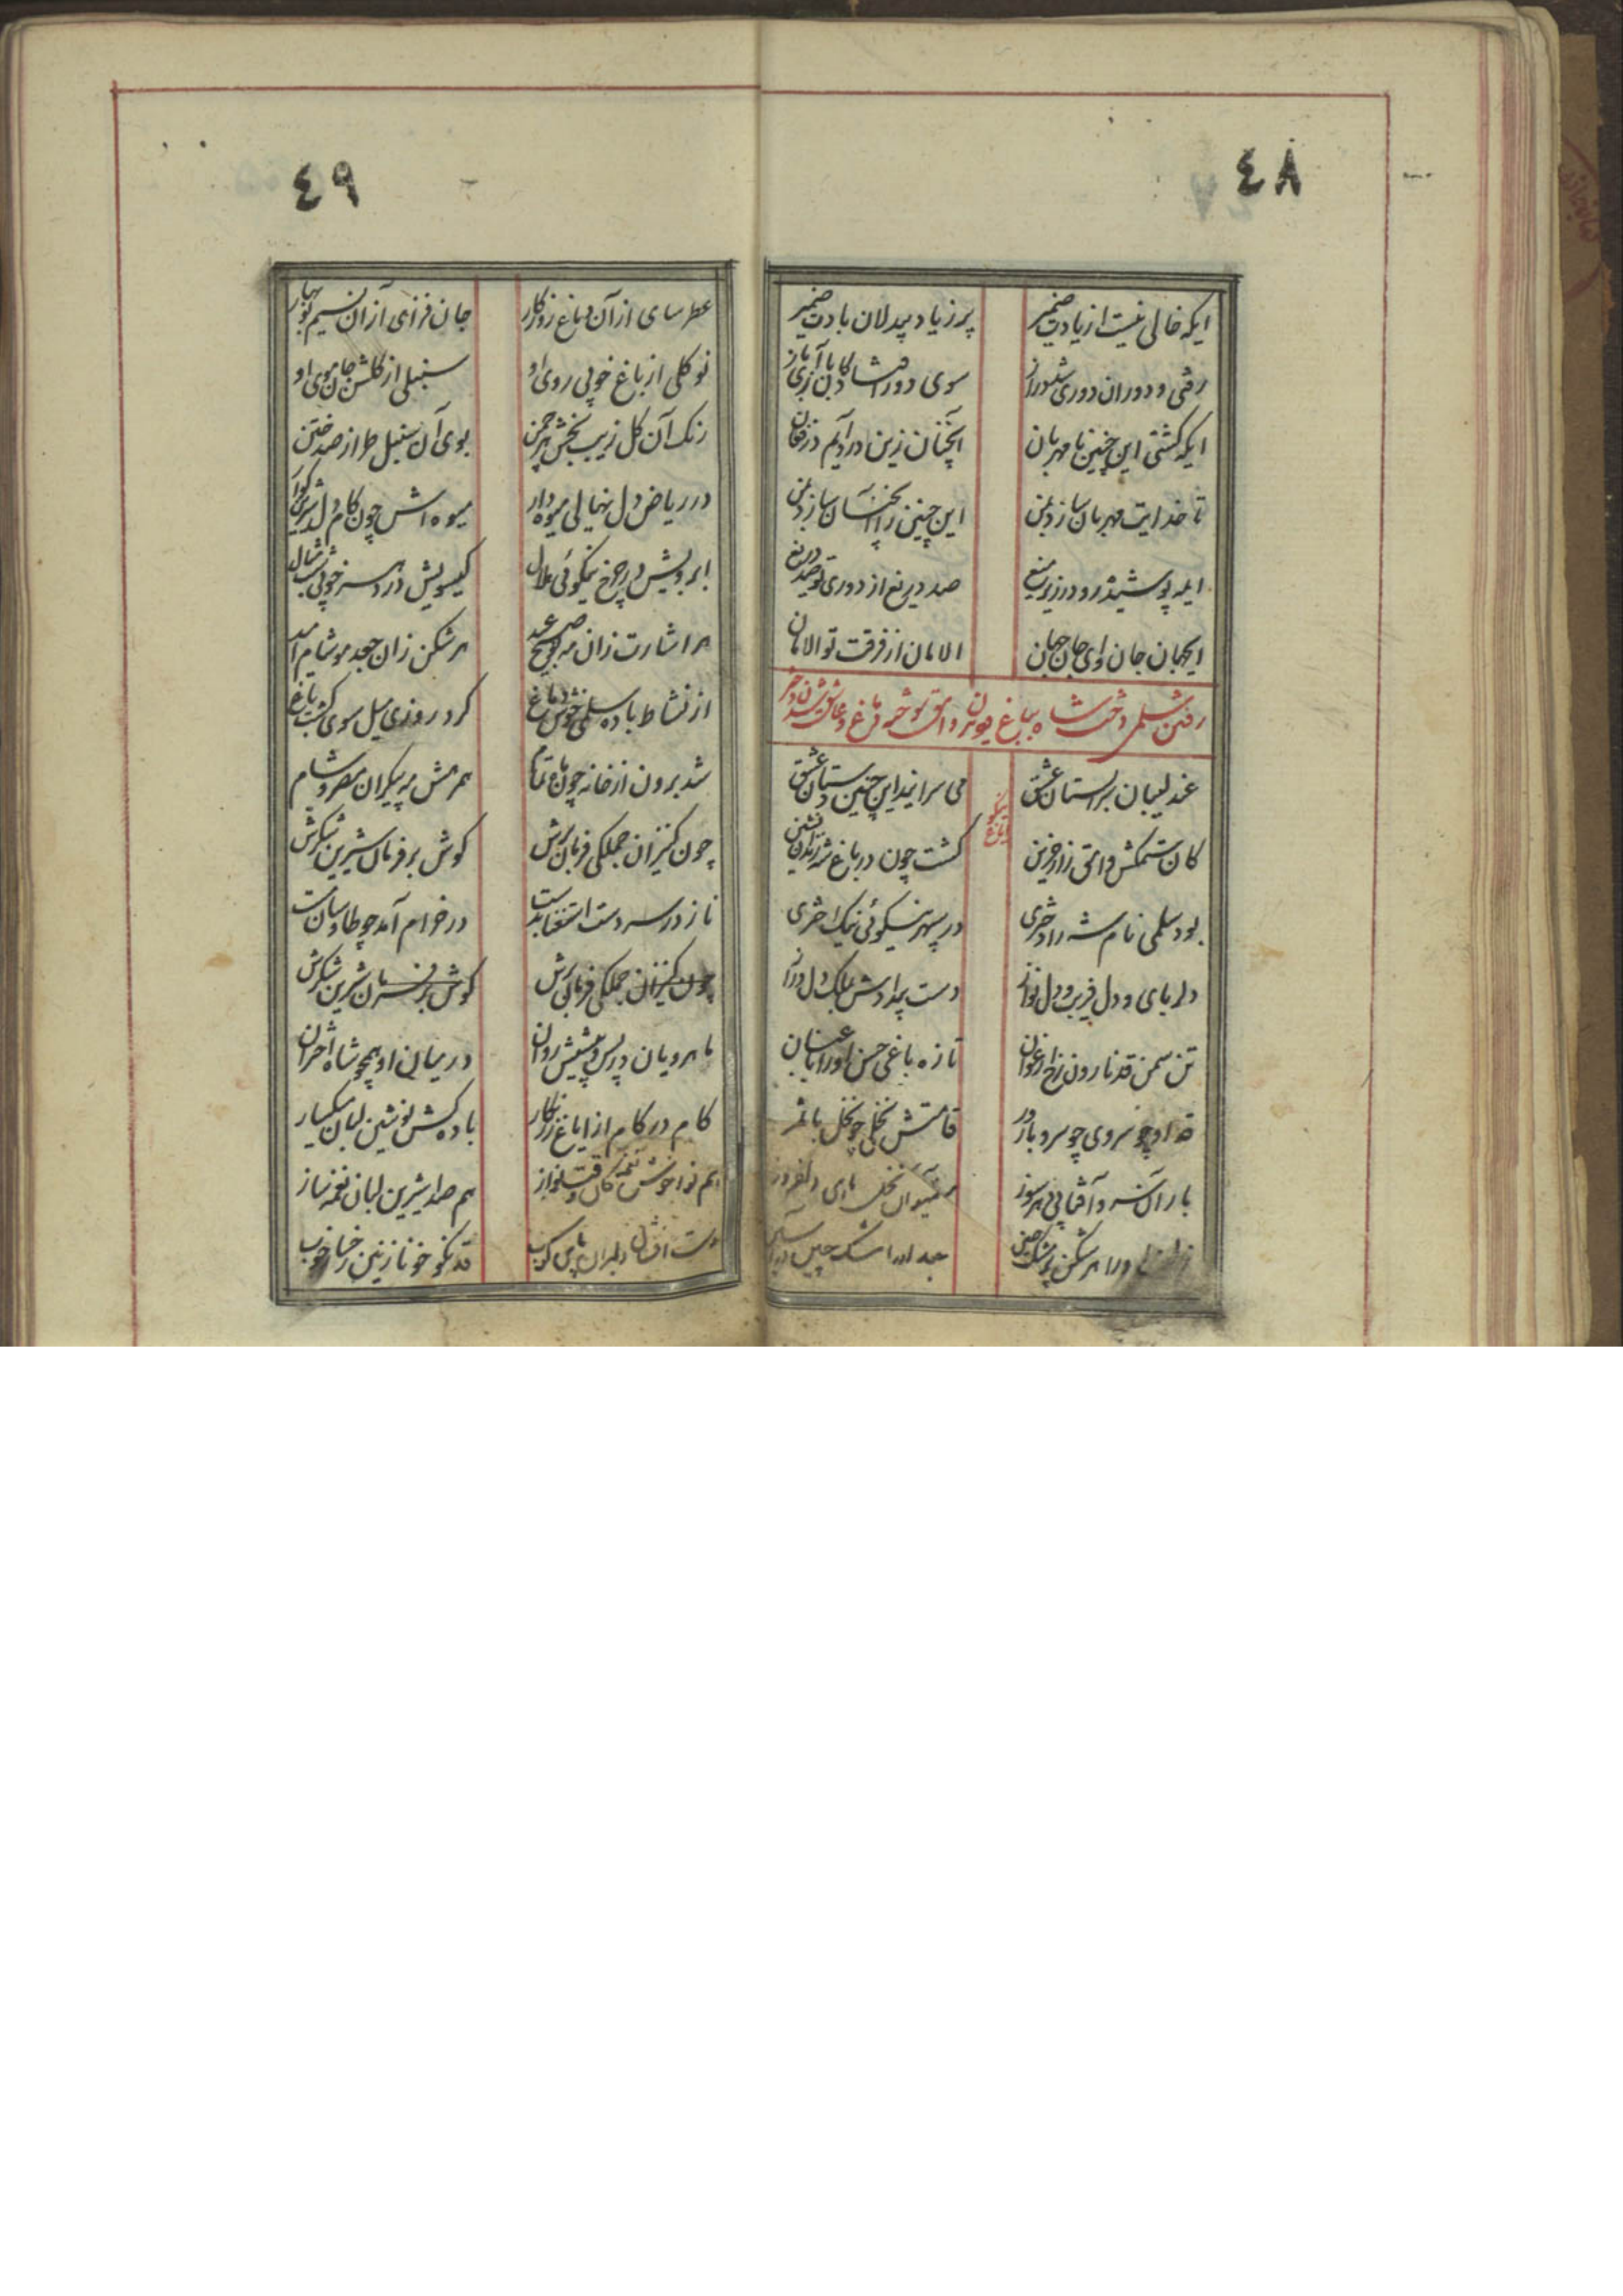 ٤٨
ایکه خالی نیست از یادت ضمیر
پر ز یاد بیدلان بادت ضمیر
رفتی و دوران دوری شد دراز
سوی دور افتادکان بازآی باز
ایکه کشتی این چنین نامهربان
آنچنان زین درد آیم در فغان
تا خدایت مهربان سازد بمن
این چنین را آنچنان سازد بمن
ایمه پوشیده رو در زیر میغ
صد دریغ از دوری تو صد دریغ
ایجهان جان و ای جان جهان
الامان از فرقت تو الامان
رفتن سلمی دخت شاه بباغ و وامق
عندلیبان بر بستان عشق
می سرایند این چنین دستان عشق
کان ستمکش وامق زار حزین
کشت چون در باغ شه
بود سلمی نام شه را دختری
در سپهر نیکوئی نیک اختری
دلربای و دل فریب و دل نواز
دست بیدادش بملک دل دراز
تن سمن قد نارون رخ ارغوان
تازه باغی حسن او را باغبان
قد او چو سروی چو سرو بارور
قامتش نخلی چو نخل با ثمر
بار آن سرو آفتابی مهر سوز
میوه آن نخل ماهی دلفروز
زلف او را هر شکن پر مشک چین
جعد او را مشک چین در آستین
٤٩
عطرسای از آن دماغ روزکار
جان فزای از آن نسیم نوبهار
نوکلی از باغ خوبی روی او
سنبلی از کلشن جان موی او
رنک آن کل زیب بخش هر چمن
بوی آن سنبل طراز صد ختن
در ریاض دل نهالی میوه دار
میوه اش چون کام دل شیرین کوار
ابرویش در چرخ نیکوئی هلال
کیسویش در سر خوبی
هر اشارت زان مه نو صبح عید
هر شکن زان جعد مو شام امید
از نشاط باده سلمی خوش دماغ
کرد روزی میل سوی کشت باغ
شد برون از خانه چون ماه تمام
همرهش مه پیکران مصر و شام
چون کنیزان جملکی فرمان برش
کوش بر فرمان شیرین شکرش
ناز در سر دست استغنا بدست
در خرام آمد چو طاوسان مست
چون کنیزان جملکی فرمان برش
کوش بر فرمان شیرین شکرش
ماهرویان در پس و پیشش روان
در میان او همچو شاه اختران
کام در کام از ایاغ زرنکار
باده کش نوشین لبان میکسار
هم نوا خوش نغمه کان دلنواز
هم صدا شیرین لبان نغمه ساز
دست افشان دلبران پای کوب
قد نکو خو نازنین رخسار خوب